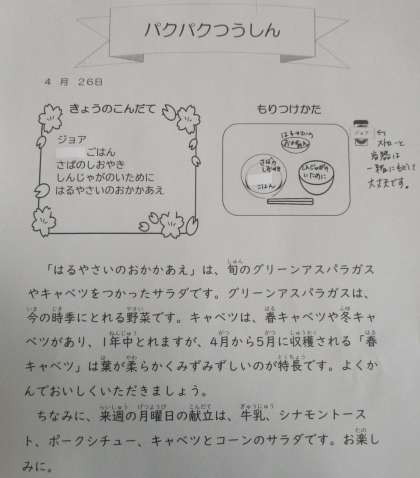 パクパクつうしん
4 月 26日
きょうのこんだて
ジョア
ごはん
さばのしおやき
しんじゃがのいために
はるやさいのおかかあえ
もりつけかた
はるやさいの
おかかあえ
さばの
しおやき
ごはん
しんじゃがの
いために
ジョア
ストローと
容器は
一緒に出して
大丈夫です。
「はるやさいのおかかあえ」は、旬のグリーンアスパラガス
やキャベツをつかったサラダです。グリーンアスパラガスは、
今の時季にとれる野菜です。キャベツは、春キャベツや冬キャ
ベツがあり、1年中とれますが、4月から5月に収穫される「春
キャベツ」は葉が柔らかくみずみずしいのが特長です。よくか
んでおいしくいただきましょう。
ちなみに、来週の月曜日の献立は、牛乳、シナモントース
ト、ポークシチュー、キャベツとコーンのサラダです。お楽し
みに。